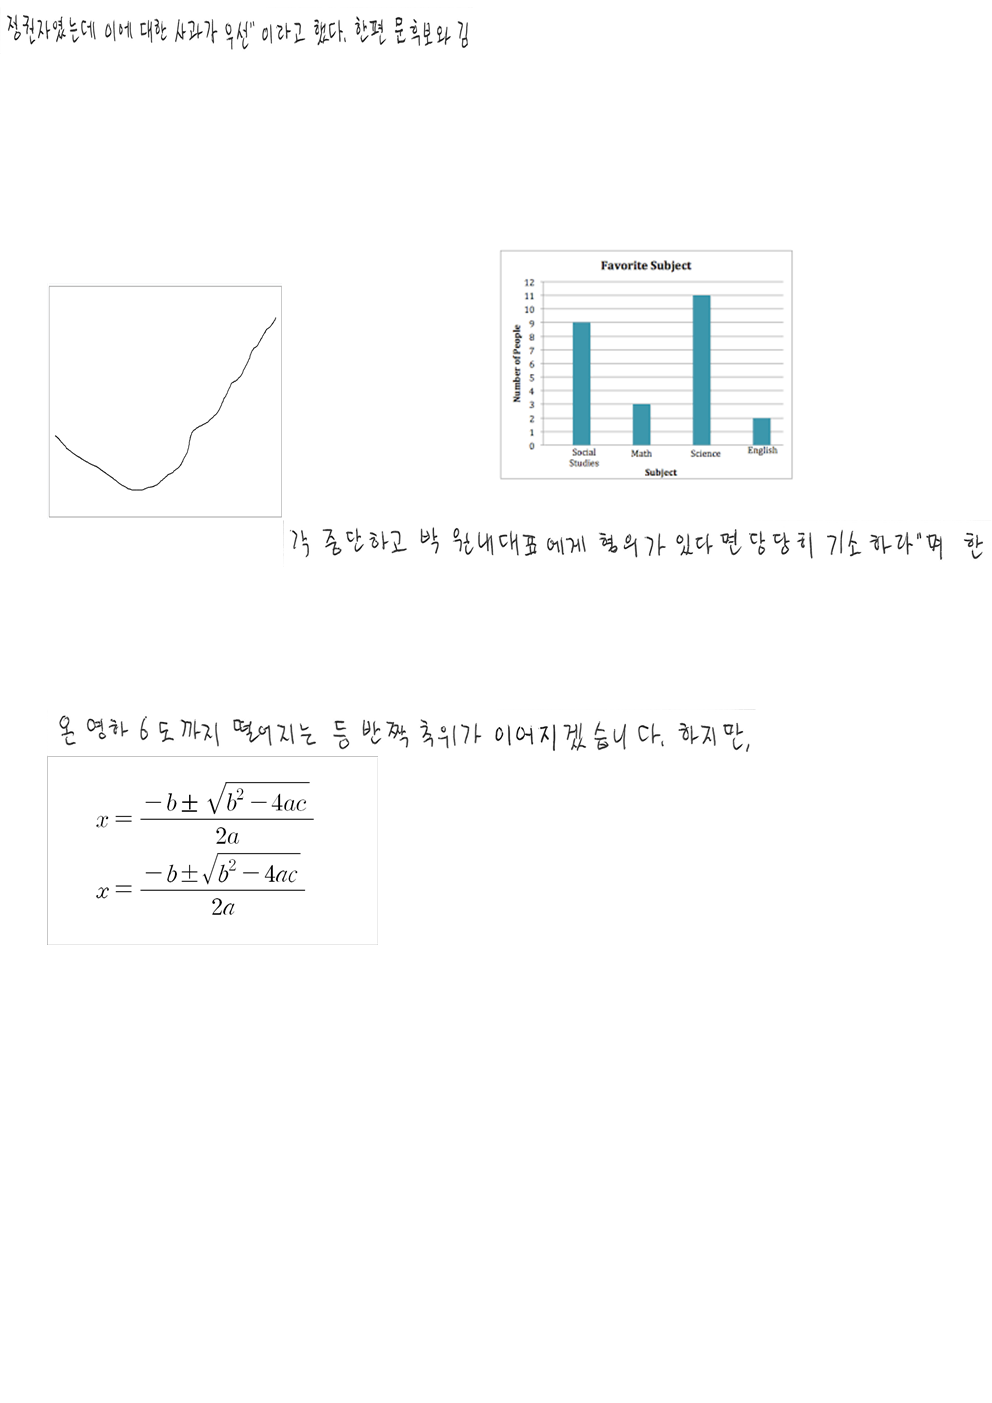 정권자였는데 이에 대한 사과가 우선" 이라고 했다. 한편 문후보와 김
Favorite Subject
12
11
10
9
8
7
6
5
4
3
2
1
0
Number of People
Social Studies
Math
Science
English
Subject
각 중단하고 박 원내대표에게 혐의가 있다면 당당히 기소하라"며 한
온 영하 6도까지 떨어지는 등 반짝 추위가 이어지겠습니다. 하지만,
x = \frac{-b ± \sqrt{b^2 - 4ac}}{2a}
x = \frac{-b ± \sqrt{b^2 - 4ac}}{2a}